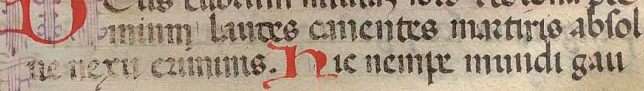 Deus tuorum militum sors et corona pre
mium laudes canentes martiris absol
ue nexu criminis. Hic nempe mundi gau